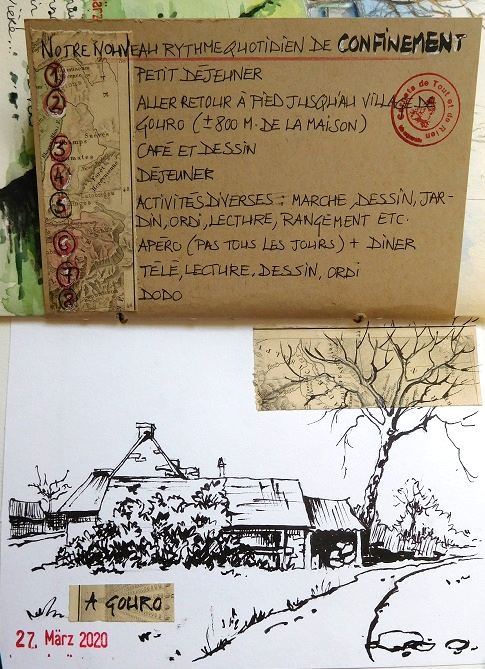 NOTRE NOUVEAU RYTHME QUOTIDIEN DE CONFINEMENT
1 PETIT DÉJEUNER
2 ALLER RETOUR À PIED JUSQU'AU VILLAGE DE
GOURO (±800 M. DE LA MAISON)
3 CAFÉ ET DESSIN
4 DÉJEUNER
5 ACTIVITÉS DIVERSES : MARCHE, DESSIN, JAR-
DIN, ORDI, LECTURE, RANGEMENT ETC.
6 APÉRO (PAS TOUS LES JOURS) + DINER
7 TÉLÉ, LECTURE, DESSIN, ORDI
8 DODO
Carnets de Tout et de Rien
A GOURO.
27. März 2020